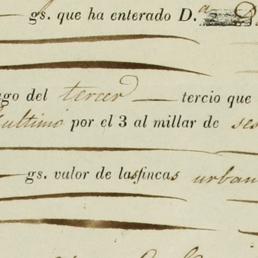 gs. que ha enterado D.ª
go del tercer tercio que
ultimo por el 3 al millar de
gs. valor de las fincas urban